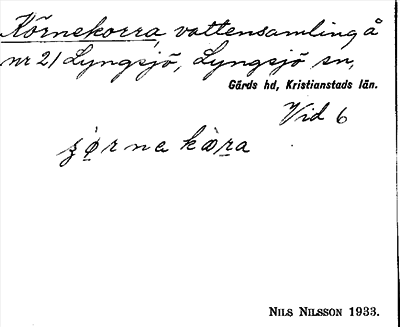 Körnekorra, vattensamling å
nr 21 Lyngsjö, Lyngsjö sn,
Gärds hd, Kristianstads län.
Vid 6
NILS NILSSON 1933.